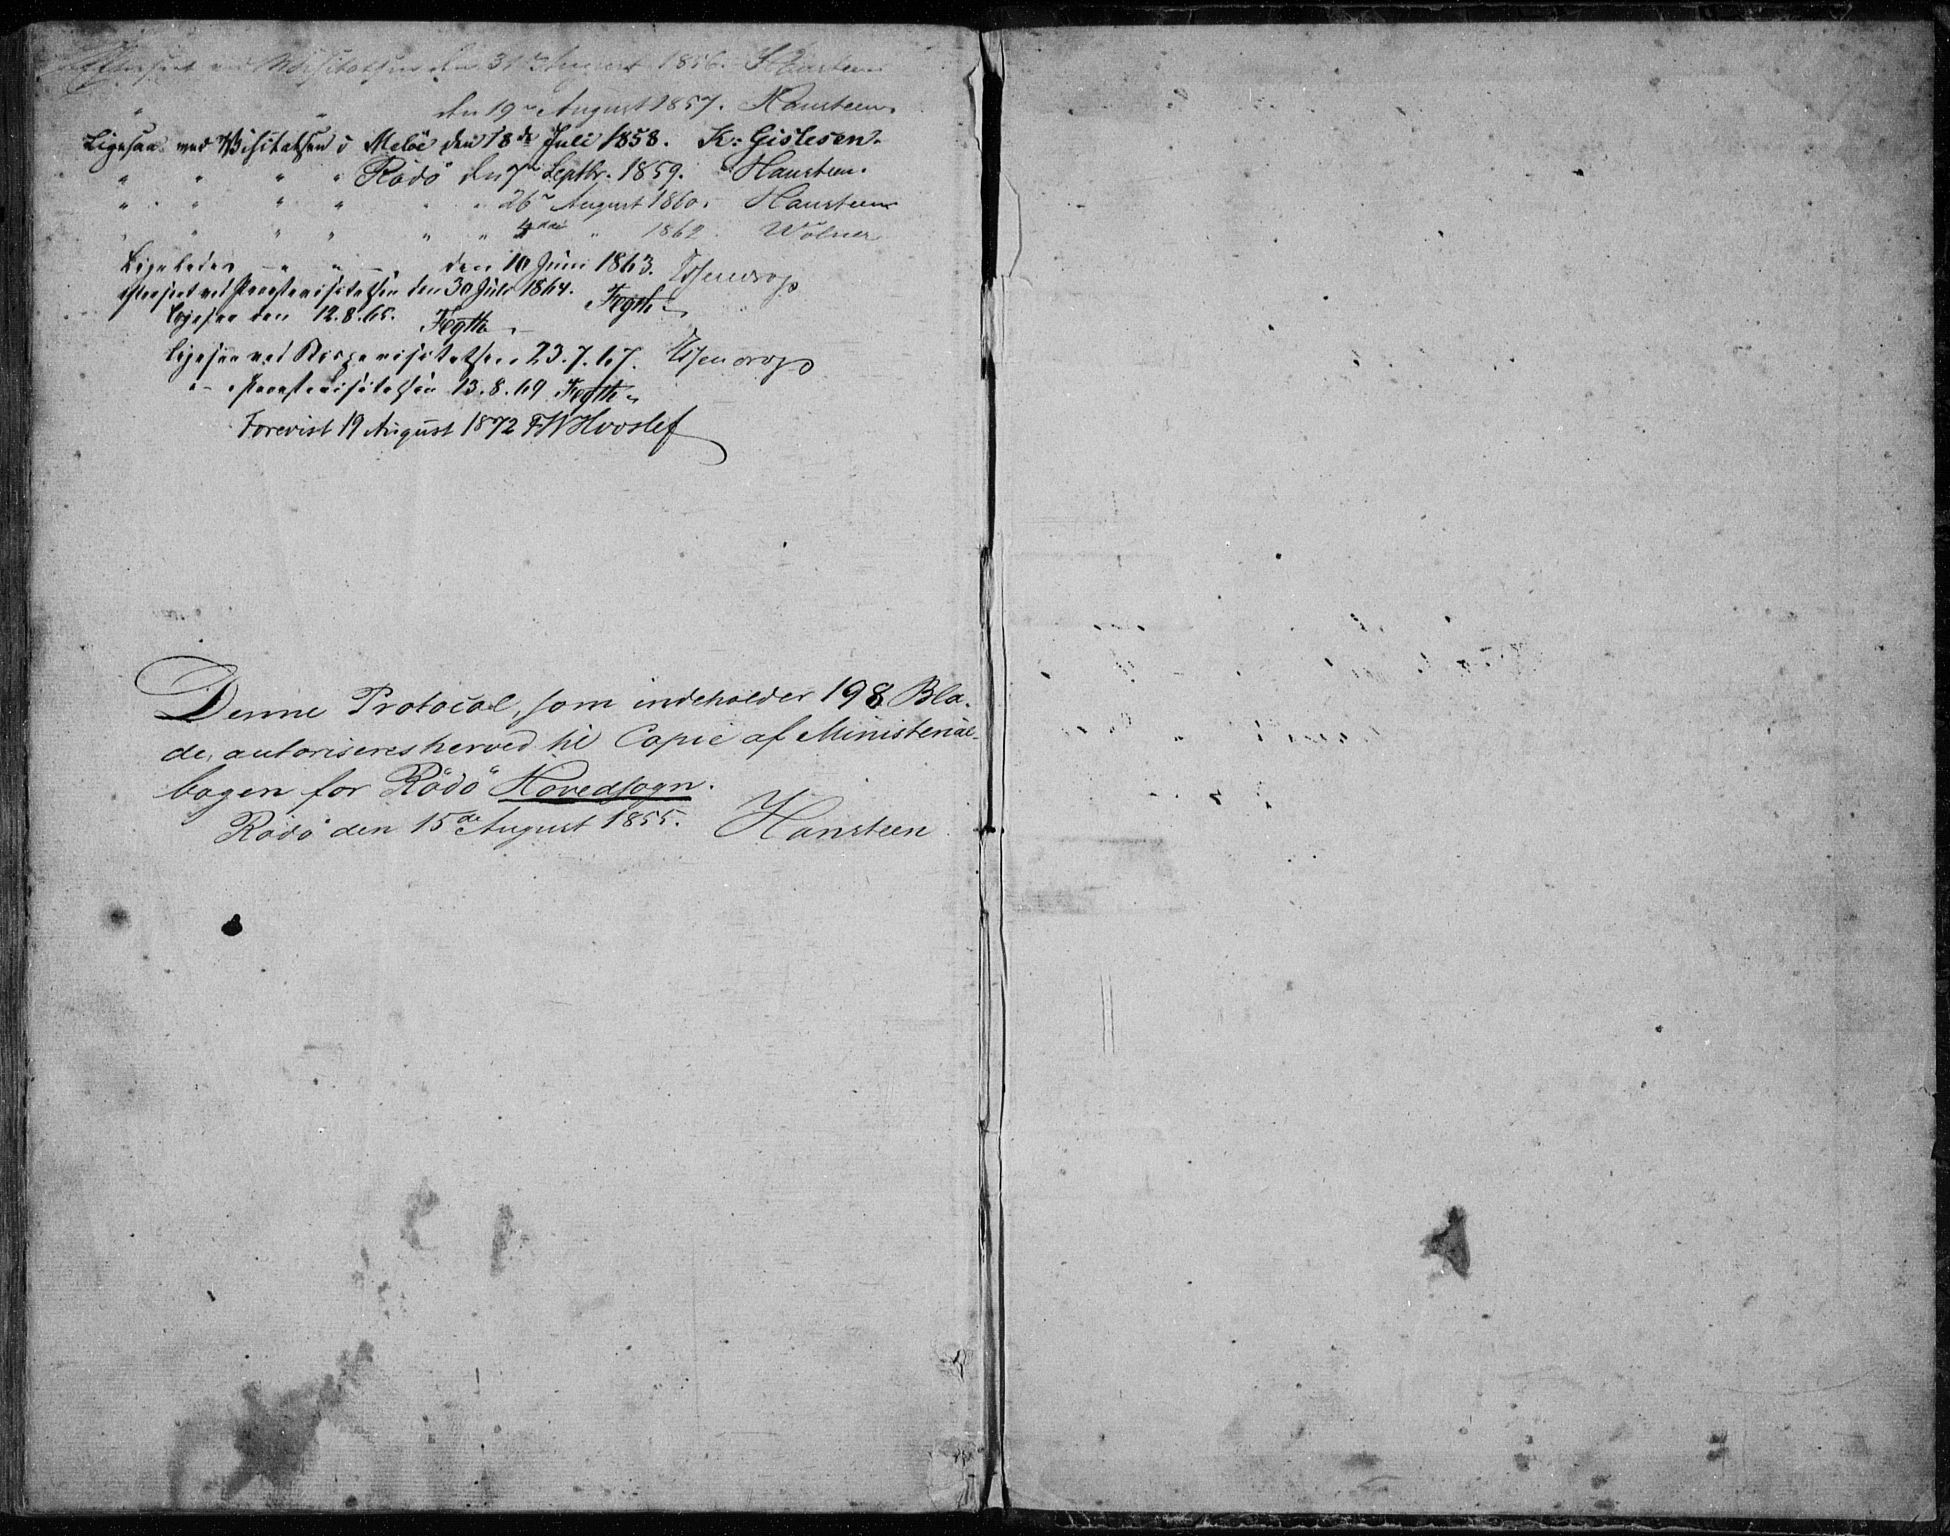 Efterseet ved Visitatsen den 31te August 1856. Hansteen
" " den 19de August 1857. Hansteen.
Ligesaa ved Visitatsen i Melöe den 18de Juli 1858. K: Gislesen.
" " " " Rödö den 7de Septbr. 1859. Hansteen.
" " " " " " 26de August 1860. Hansteen
" " " " " " 4de " 1862. Wolner
Ligeledes " " den 10 Juni 1863. Essendrop
efterseet ved Provstevisitatsen den 30 Juli 1864. Fogth
Ligesaa den 12.8.65. Fogth
Ligesaa ved Bispevisitatsen 23.7.67. Essendrop
" - Provstevisitatsen 13.8.69 Fogth
Forevist 19 August 1872 FW Hvoslef
Denne Protocol, som indeholder 198 Bla-
de, autoriseres herved til Copie af Ministerial-
bogen for Rödö Hovedsogn.
Rödö den 15de August 1855. Hansteen